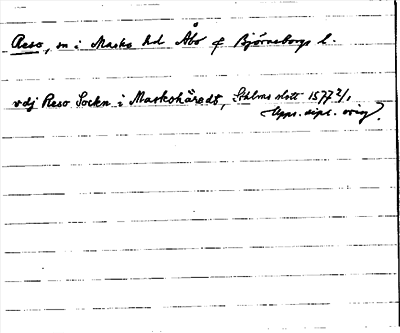 Reso, sn i Masko hd Åbo o Björneborgs l.
vdj Reso Sockn i Maskohäredt, Sthlms slott 1577 2/1
Upps. dipl. orig.